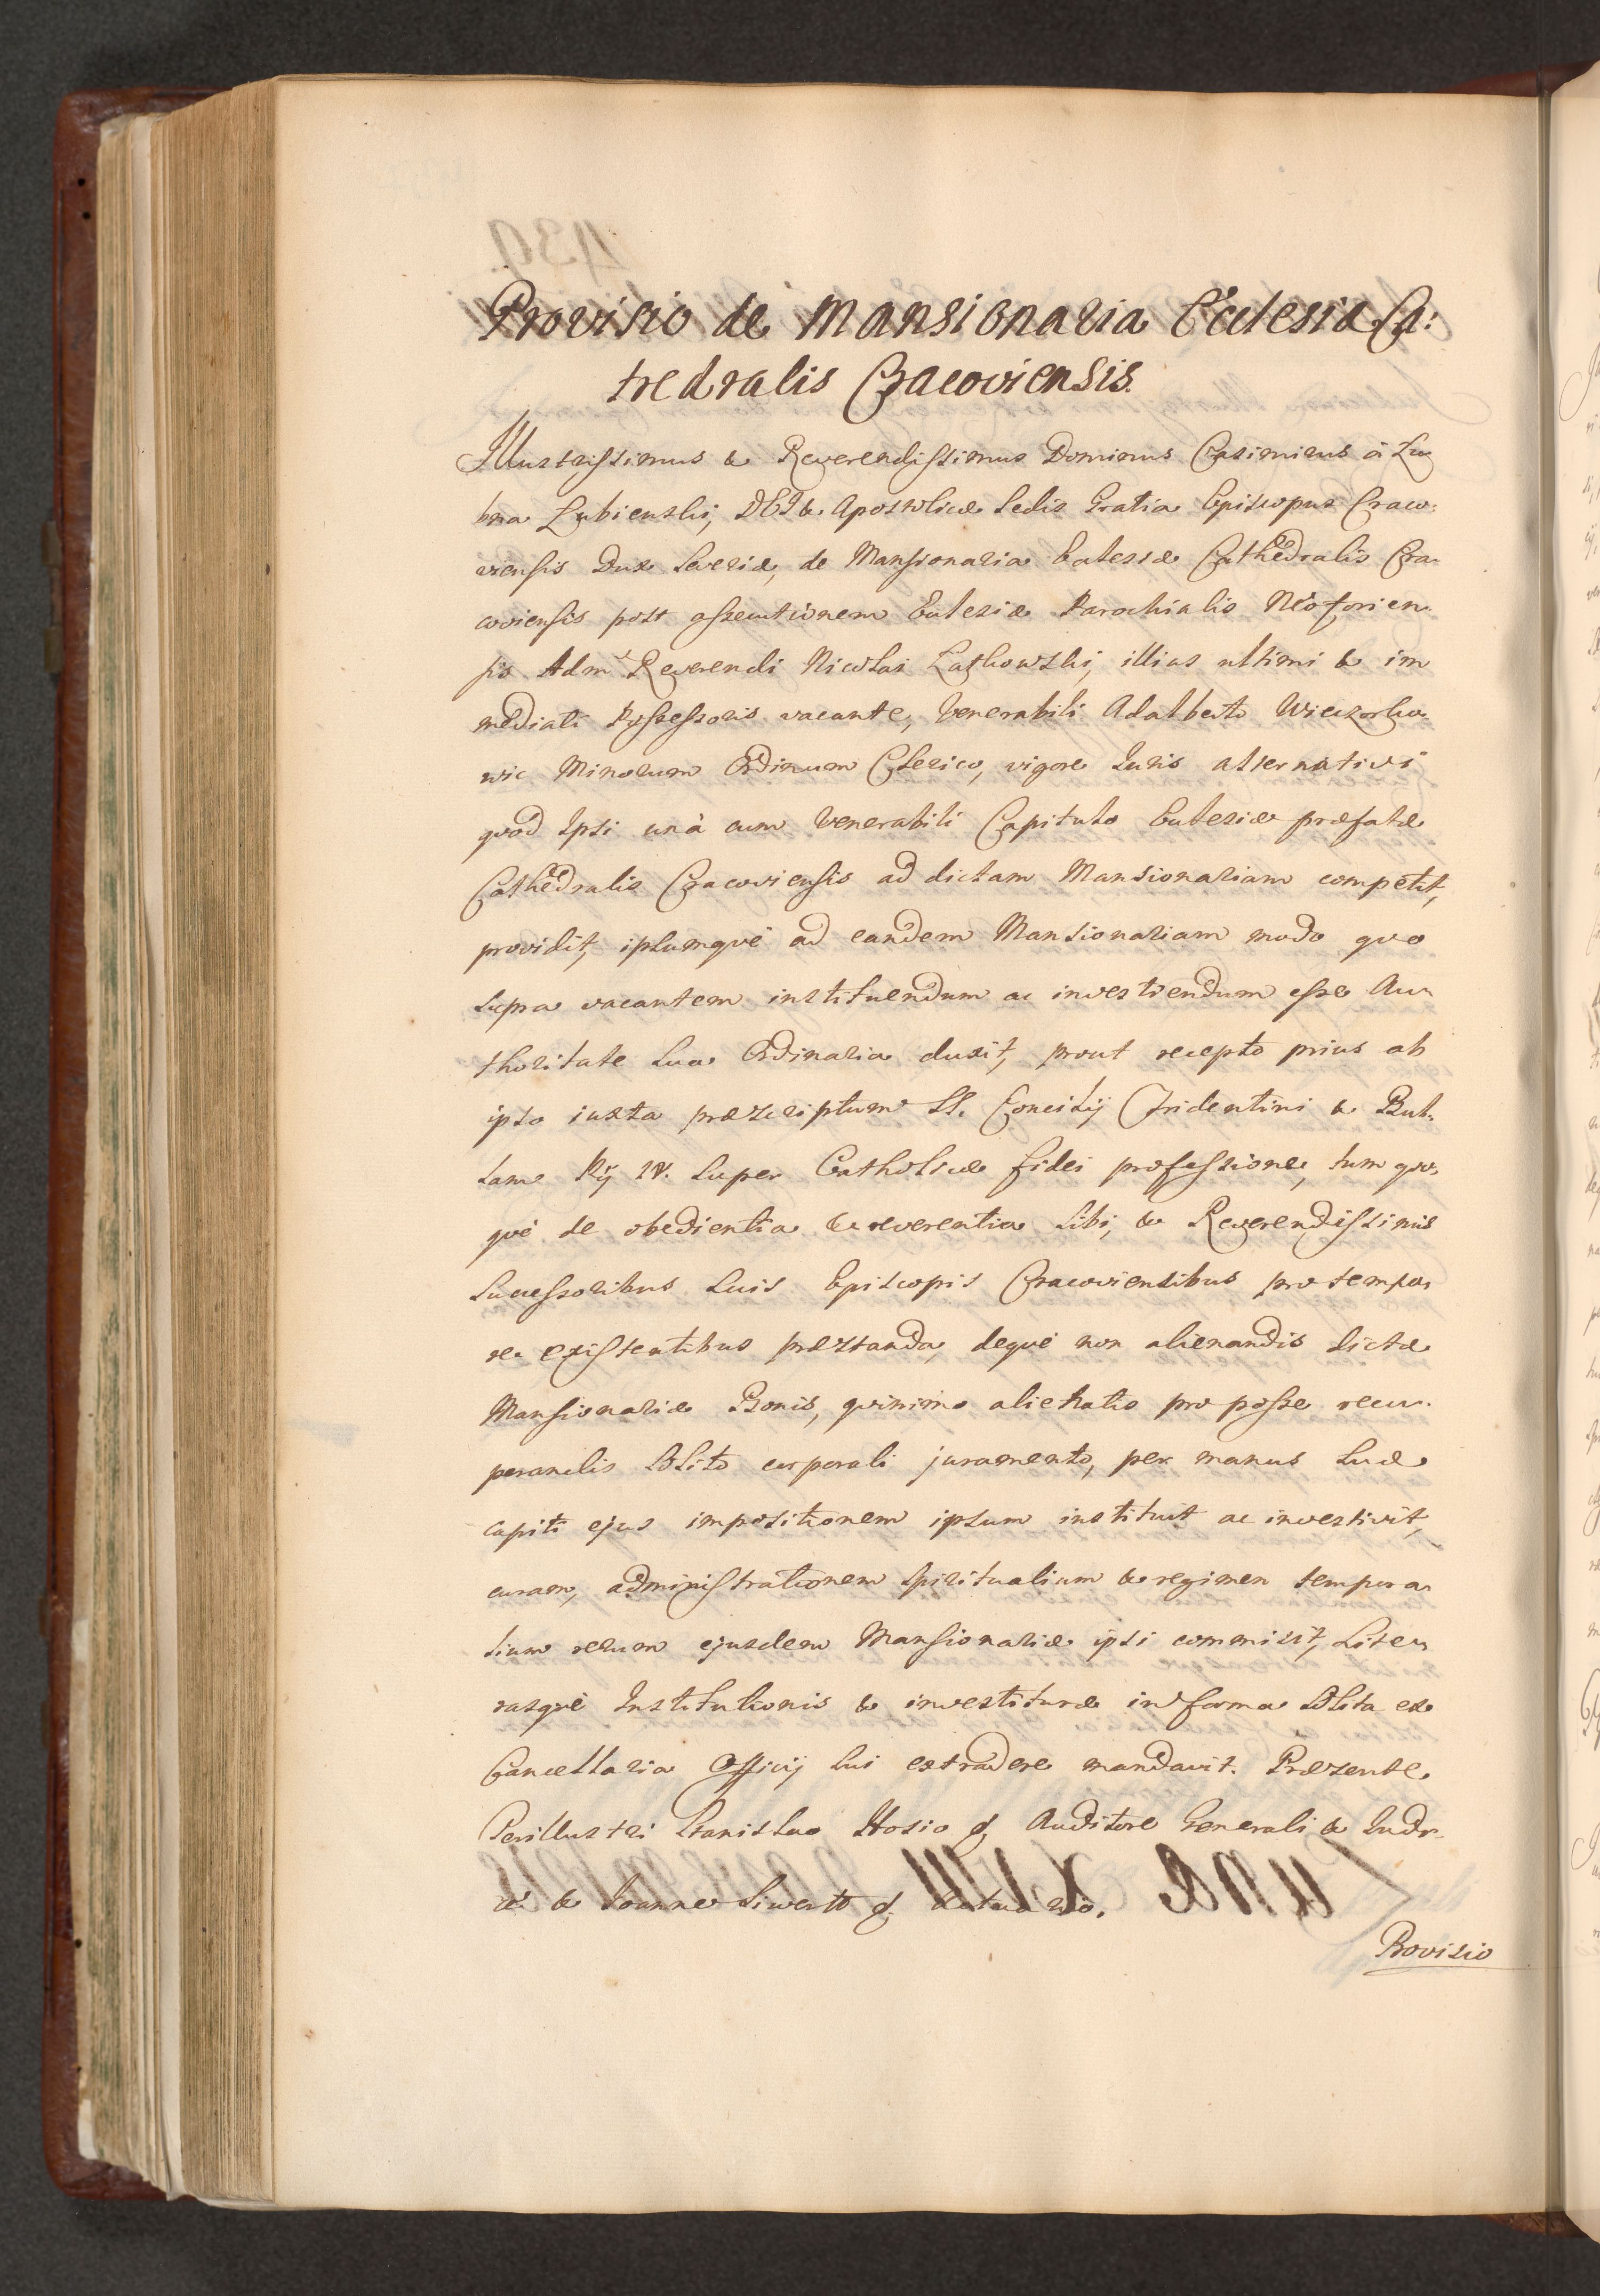 Provisio de Mansionaria Ecclesiæ Ca:
tredralis Cracoviensis.
Illustrissimus & Reverendissimus Dominus Casimirus à Lu
bna Lubienski, DEI & Apostolicæ Sedis Gratia Episcopus Craco:
viensis Dux Severiæ, de Mansionaria Ecclesiæ Cathedralis Cra
coviensis post assecutionem Ecclesiæ Parochialis Neoforien
sis Adm Reverendi Nicolai Laskowski, illius ultimi & im
mediati Possessoris vacante, Venerabili Adalberto
Minorum Ordinum Clerico, vigore Iuris alternativi
quod Ipsi unà cum Venerabili Capitulo Ecclesiæ præfatæ
Cathedralis Cracoviensis ad dictam Mansionariam competit,
providit, ipsumquè ad eandem Mansionariam modo quo
supra vacantem instituendum ac investiendum esse Au
thoritate sua Ordinaria duxit, prout recepto prius ab
ipso iuxta præscriptum SS. Concilij Tridentini & Bul
lam Pij IV. super Catholicæ fidei professione, tum quo
què de obedientia & reverentia sibi, & Reverendissimis
Successoribus suis Episcopis Cracoviensibus pro tempo
re existentibus præstanda, dequè non alienandis dictæ
Mansionariæ Bonis, quinimo alienatis pro posse recu
perandis solito corporali juramento, per manus suæ
capiti ejus impositionem ipsum instituit ac investivit,
curam, administrationem spiritualium & regimen tempora
lium rerum ejusdem Mansionariæ ipsi commisit, Lite
rasquè Institutionis & investituræ in forma solita ex
Cancellaria Officij sui extradere mandavit. Præsente
Perillustri Stanislao Hosio d. Auditore Generali & Iudi
ce & Ioanne Siwertt d. Actuario.
Provisio